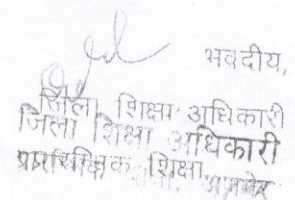 भवदीय,
जिला शिक्षा अधिकारी
जिला शिक्षा अधिकारी
प्रारम्भिक शिक्षा, अजमेर